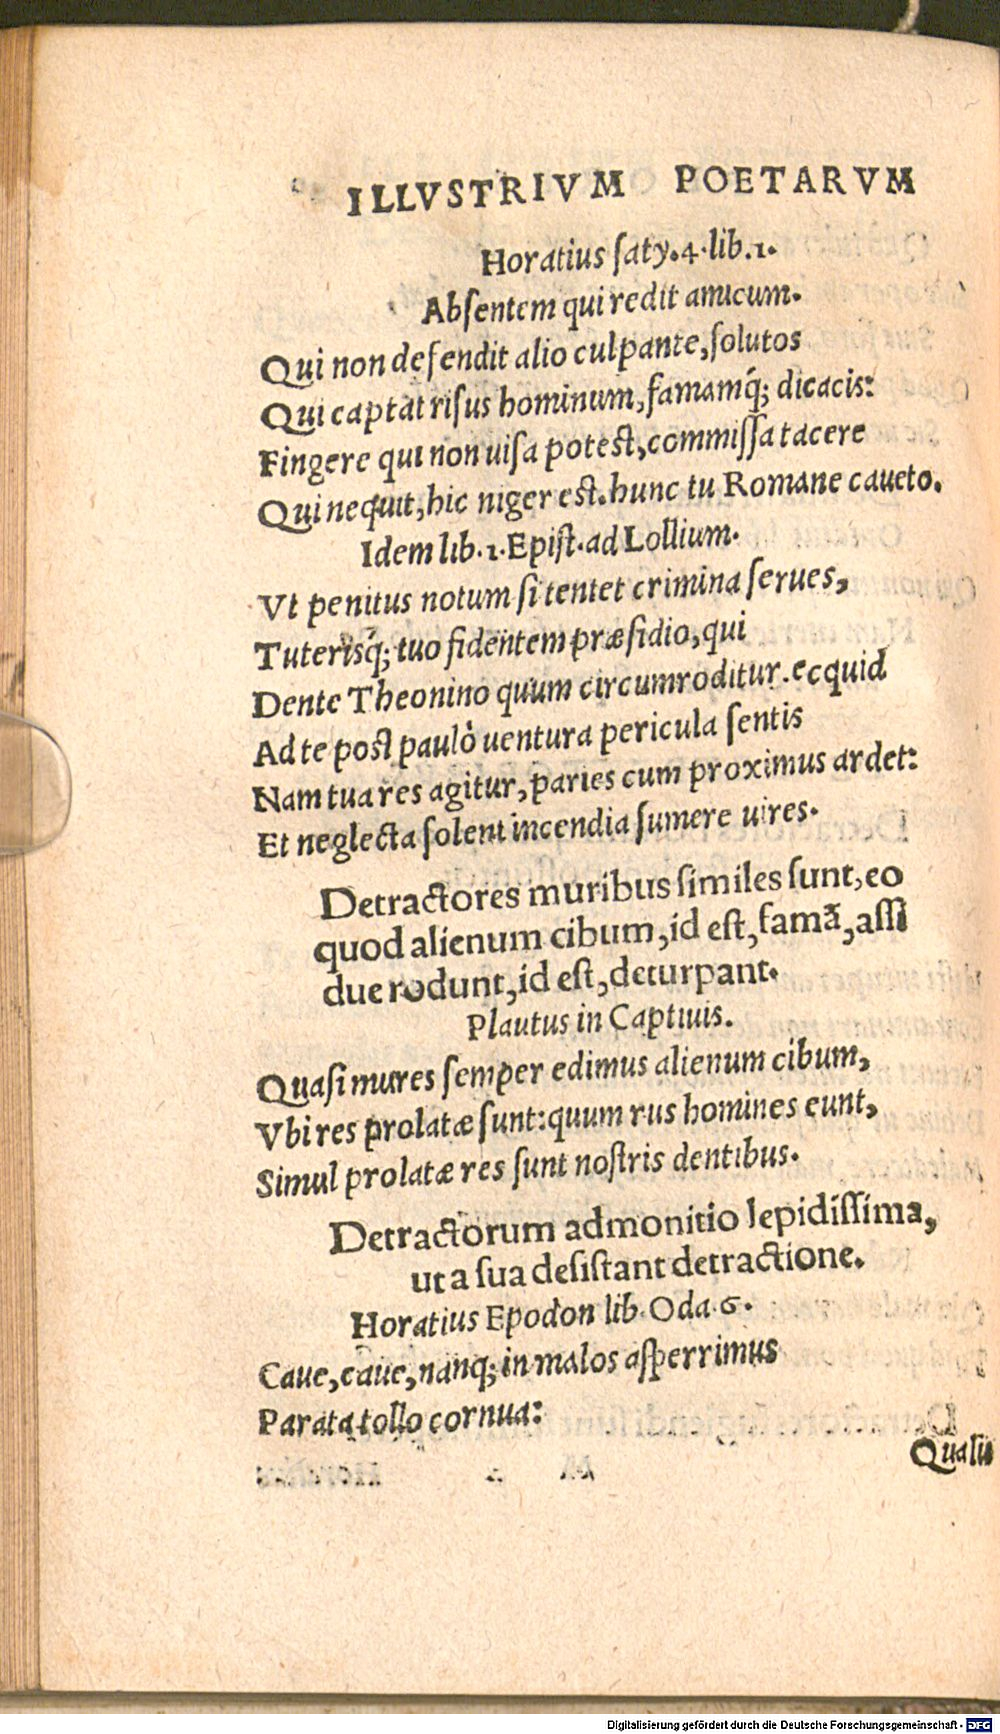 ILLVSTRIVM POETARVM
Horatius ſaty.4.lib.1.
Abſentem qui redit amicum.
Qui non defendit alio culpante,ſolutos
Qui captat riſus hominum,famamq́; dicacis:
Fingere qui non uiſa poteſt,commiſſa tacere
Qui nequit,hic niger eſt.hunc tu Romane caueto.
Idem lib.1.Epiſt.ad Lollium.
Vt penitus notum ſi tentet crimina ſerues,
Tuterisq́; tuo fidentem præſidio,qui
Dente Theonino quum circumroditur.ecquid
Ad te poſt paulò uentura pericula ſentis
Nam tua res agitur,paries cum proximus ardet:
Et neglecta ſolent incendia ſumere uires.
Detractores muribus ſimiles ſunt,eo
quod alienum cibum,id eſt,famã,aſſi
due rodunt,id eſt,deturpant.
Plautus in Captiuis.
Quaſi mures ſemper edimus alienum cibum,
Vbi res prolatæ ſunt:quum rus homines eunt,
Simul prolatæ res ſunt noſtris dentibus.
Detractorum admonitio lepidiſſima,
ut a ſua deſiſtant detractione.
Horatius Epodon lib.Oda.6.
Caue,caue,nanq; in malos aſperrimus
Parata tollo cornua:
Qualis
Digitalisierung gefördert durch die Deutsche Forschungsgemeinschaft - DFG